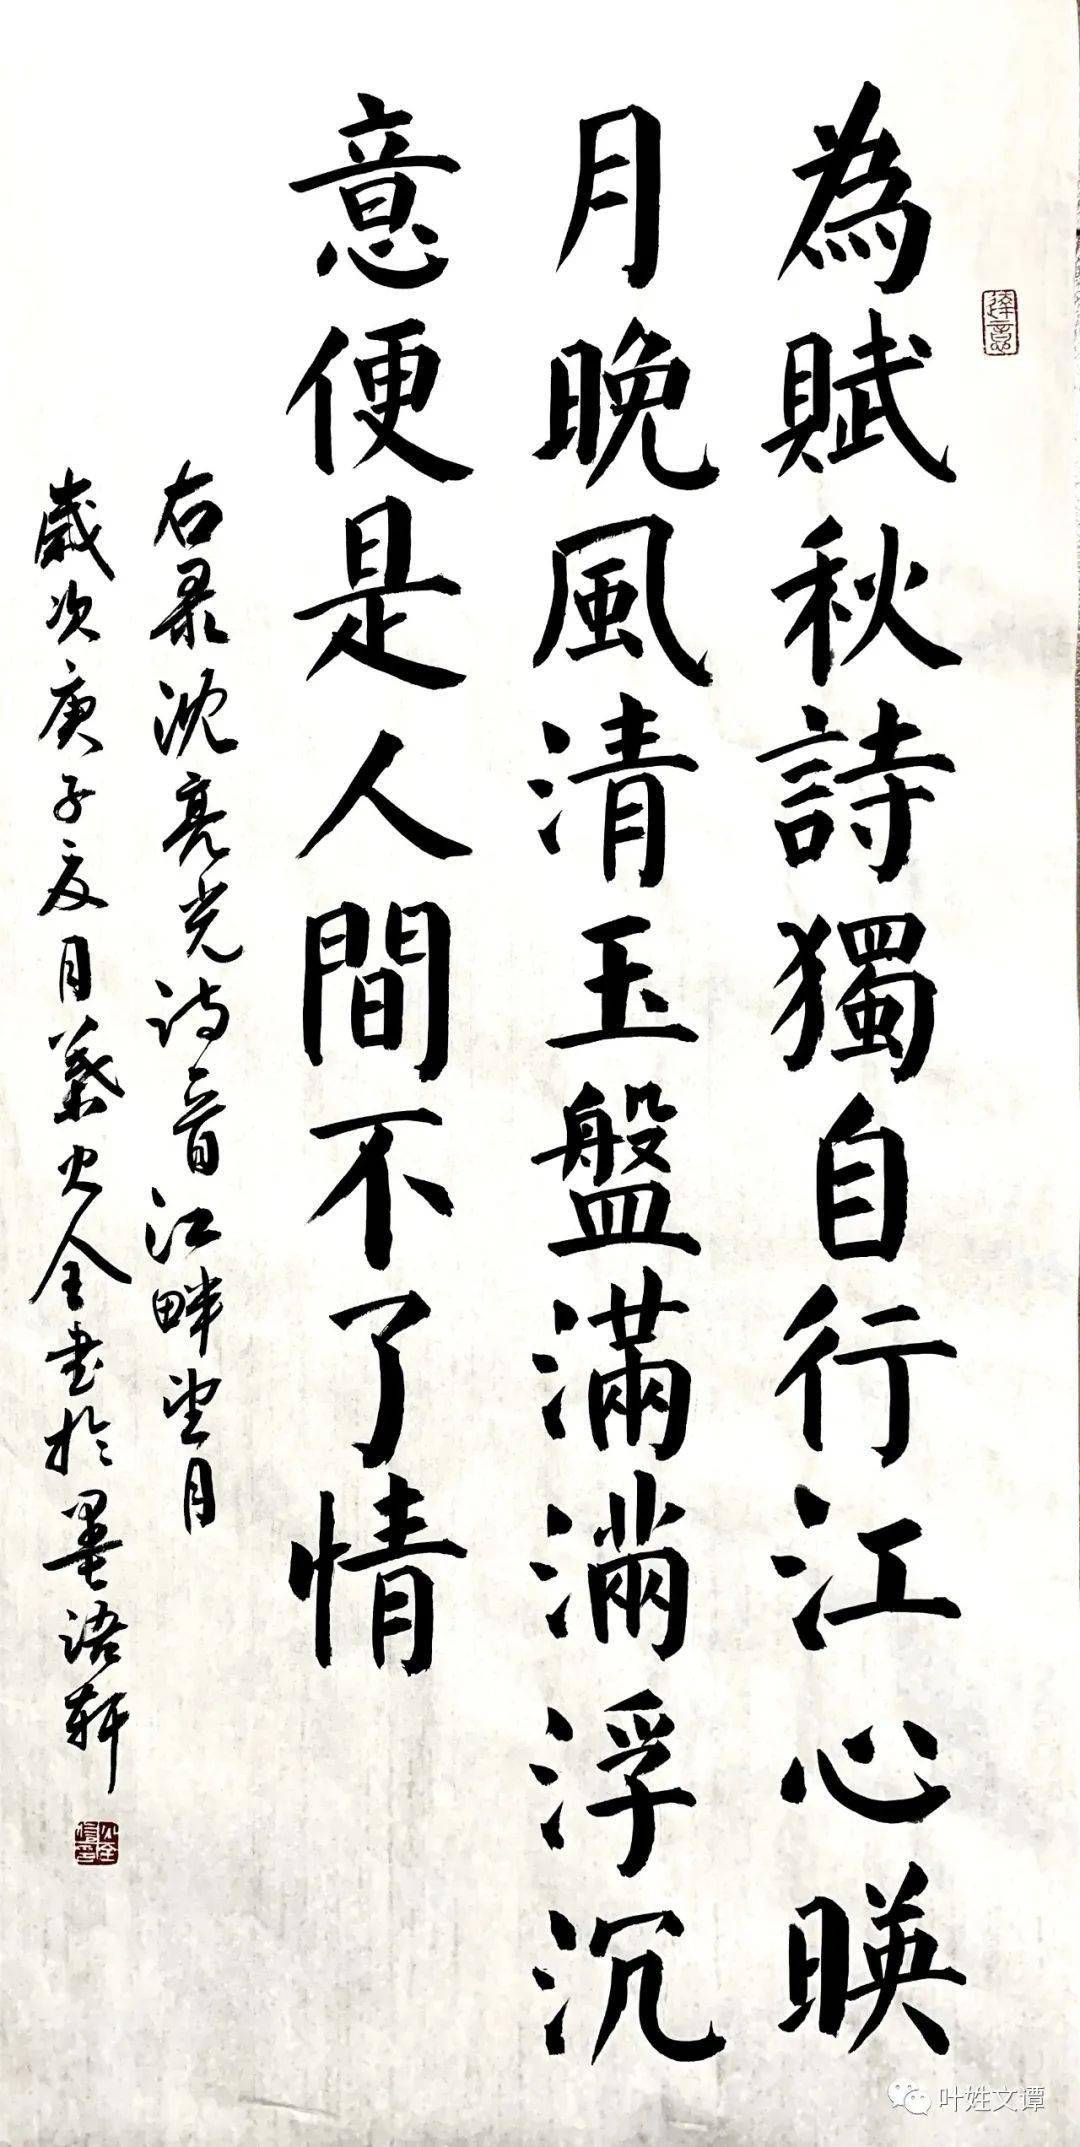 達意
為賦秋詩獨自行江心暎
月晚風清玉盤滿滿浮沉
意便是人間不了情
右录沈亮光诗江畔望月
歲次庚子夏月葉火全书於墨语軒
叶姓文谭